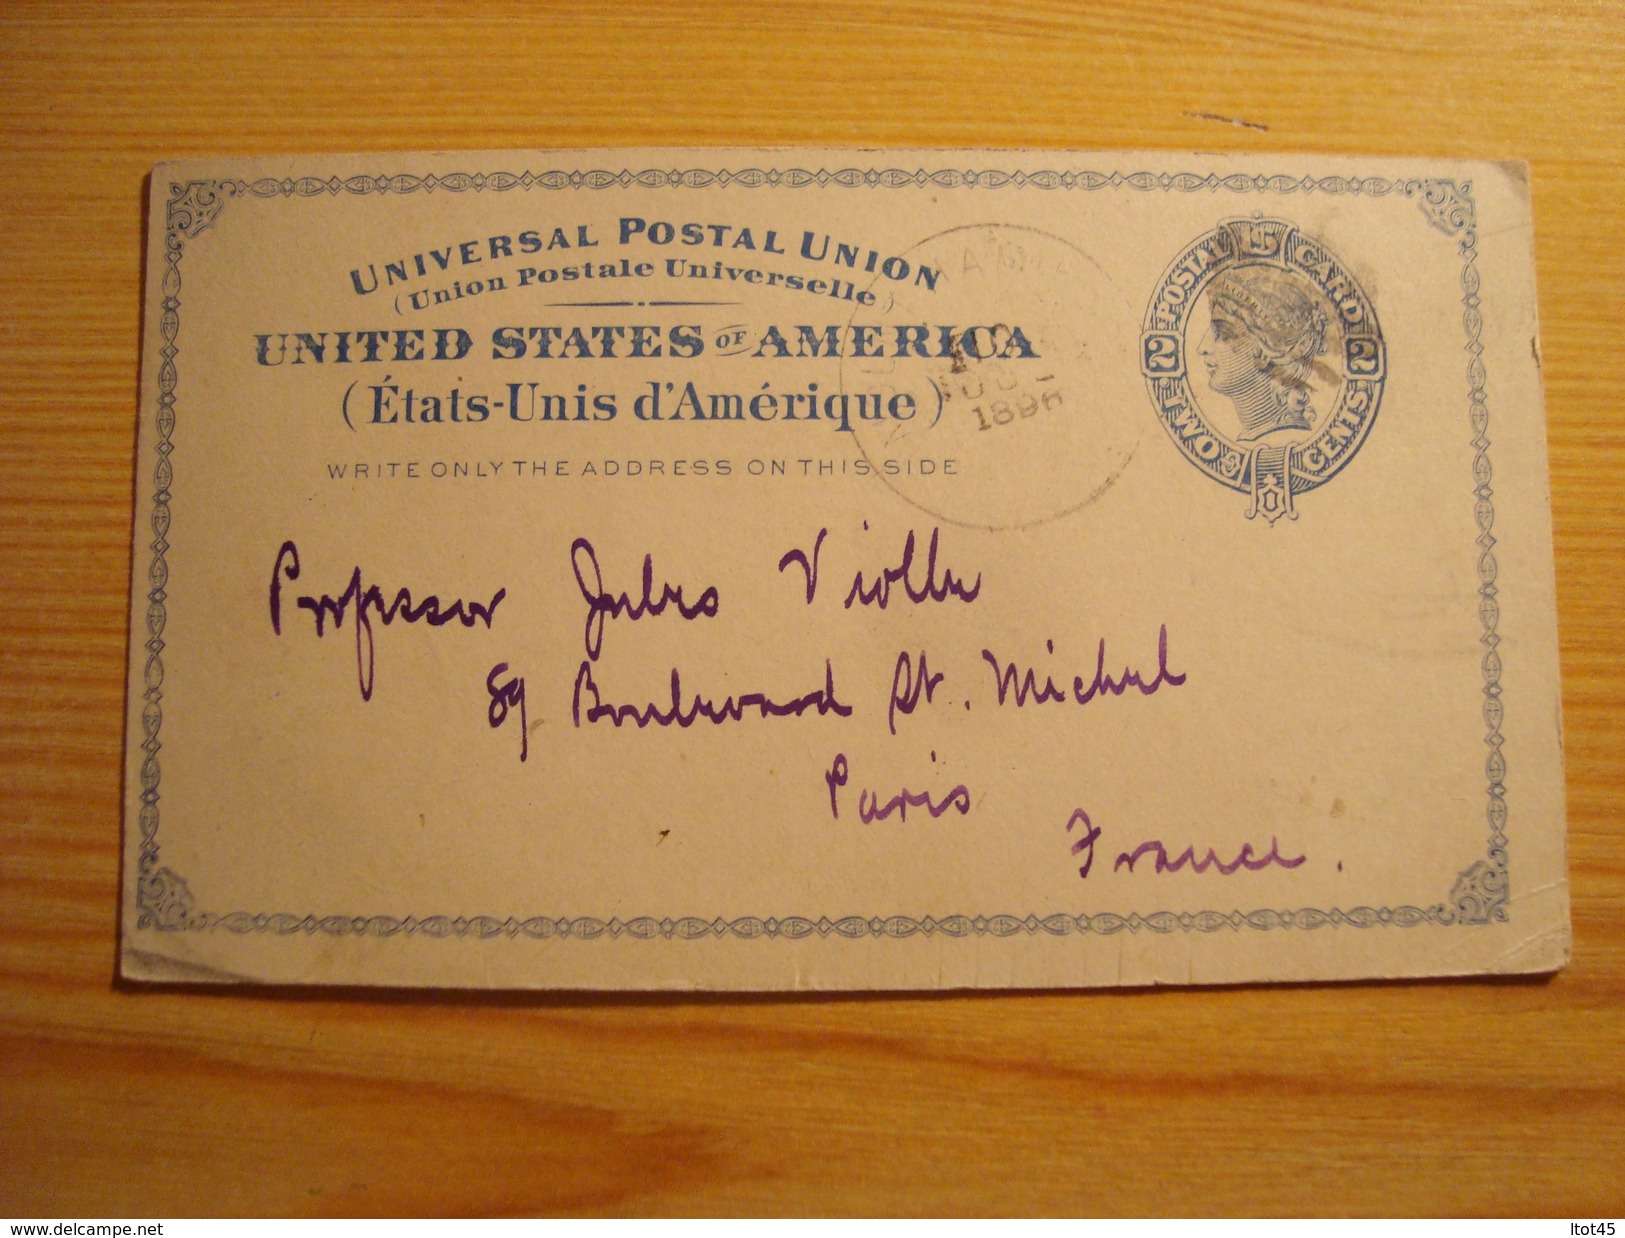 UNIVERSAL POSTAL UNION
(Union Postale Universelle)
UNITED STATES OF AMERICA
(États-Unis d'Amérique)
WRITE ONLY THE ADDRESS ON THIS SIDE
1896
POSTAL CARD
2 2
TWO CENTS
Professor Jules Violle
89 Boulevard St. Michel
Paris
France.
delcampe.net
ltot45